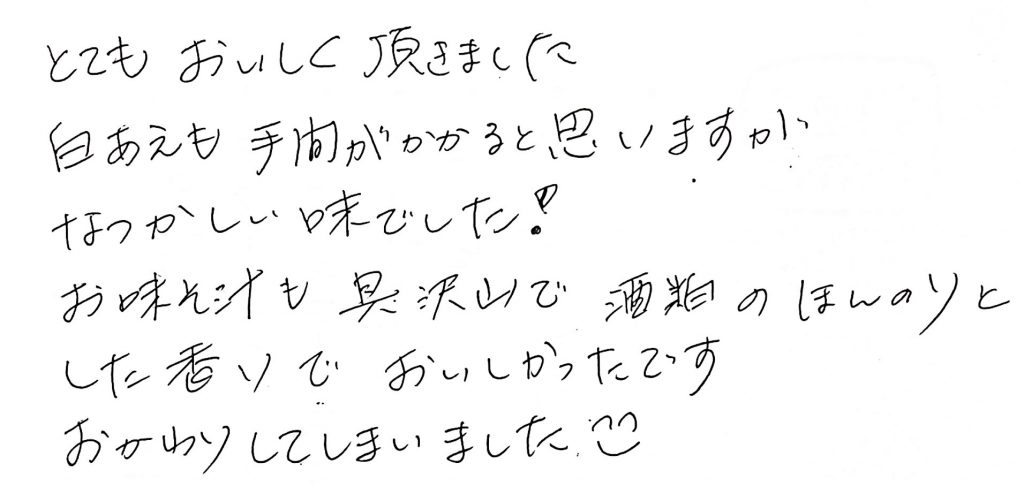 とても おいしく 頂きました
白あえも 手間がかかると思いますが
なつかしい 味でした!
お味そ汁も 具沢山で 酒粕の ほんのりと
した香りで おいしかったです
おかわりしてしまいました